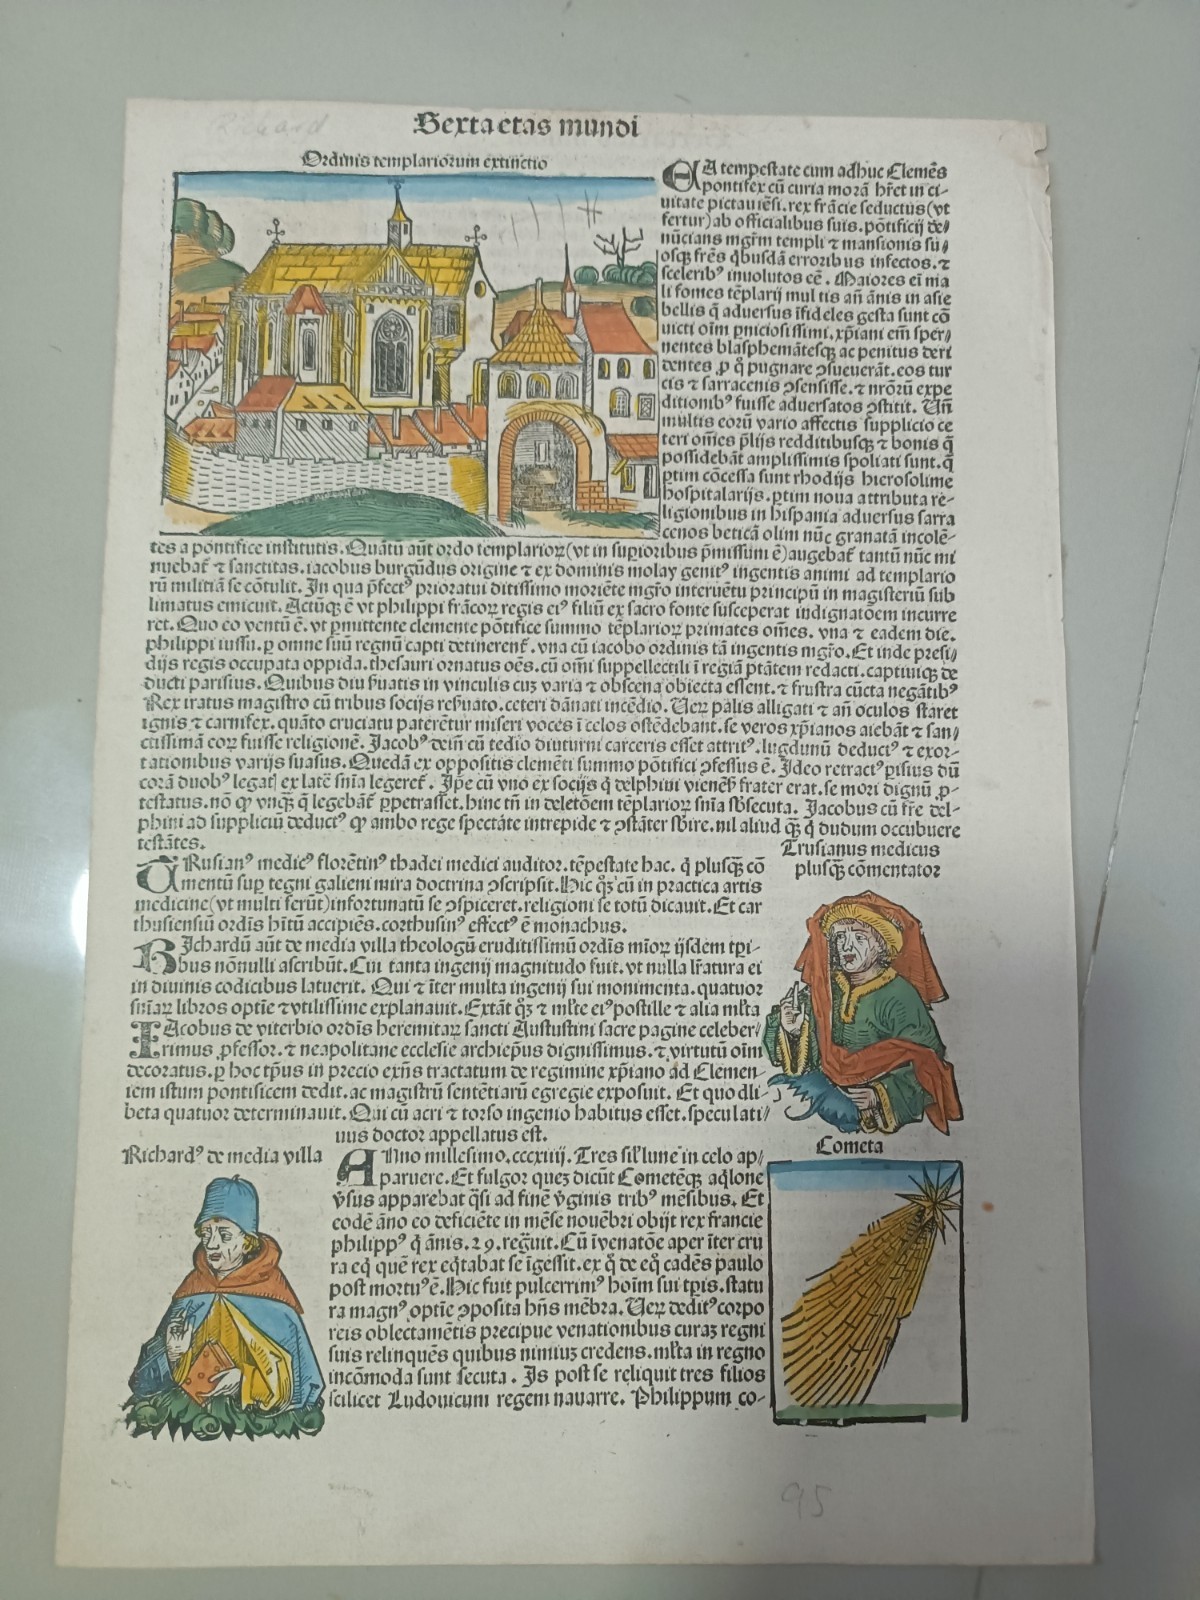 Richard
Sexta etas mundi
Ordinis templariorum extinctio
EA tempestate cum adhuc Clemẽs
pontifex cũ curia morã hr̃et in ci-
uitate pictauiẽsi. rex frãcie seductus (vt
fertur) ab officialibus suis. põtificij de/
nũcians mgr̃m templi ⁊ mansionis su/
osqꝫ fr̃es q̈busdã erroribus infectos. ⁊
sceleribꝰ inuolutos eẽ. Maiores ei̇̃ ma
li fomes tẽplarij multis añ ãnis in asie
bellis q̃ aduersus ĩfideles gesta sunt cõ
uicti oĩm ꝑniciosissimi. xp̃iani em̃ sper/
nentes blasphemãtesqꝫ ac penitus deri
dentes ꝓ q̊ pugnare ꝯsueuerãt. eos tur
cis ⁊ sarracenis ꝯsensisse. ⁊ nr̃orũ expe
ditionibꝰ fuisse aduersatos ꝯstitit. Uñ
multis eorũ vario affectis supplicio ce
teri om̃es p̃lijs redditibusqꝫ ⁊ bonis q̃
possidebãt amplissimis spoliati sunt. q̃
ꝑtim cõcessa sunt rhodijs hierosolime
hospitalarijs. ꝑtim noua attributa re-
ligionibus in hispania aduersus sarra
cenos beticã olim nũc granatã incolẽ-
tes a pontifice institutis. Quãtũ aũt ordo templarioꝝ (vt in supioribus p̃missum ẽ) augebat̃ tantũ nũc mi
nuebat̃ ⁊ sanctitas. iacobus burgũdus origine ⁊ ex dominis molay genitꝰ ingentis animi ad templario
rũ militiã se cõtulit. In qua p̃fectꝰ prioratui ditissimo moriẽte mgr̃o interuẽtu principũ in magisteriũ sub
limatus emicuit. Actũqꝫ ẽ vt philippi frãcoꝝ regis eiꝰ filiũ ex sacro fonte susceperat indignatõem incurre
ret. Quo eo ventũ ẽ. vt ꝑmittente clemente põtifice summo tẽplarioꝝ primates om̃es. vna ⁊ eadem die.
philippi iussu. ꝑ omne suũ regnũ capti detinerent̃. vna cũ iacobo ordinis tã ingentis mgr̃o. Et inde presi/
dijs regis occupata oppida. thesauri ornatus oẽs. cũ om̃i suppellectili ĩ regiã ptãtem redacti. captiuiqꝫ de
ducti parisius. Quibus diu ẜuatis in vinculis cuꝫ varia ⁊ obscena obiecta essent. ⁊ frustra cũcta negãtibꝰ
Rex iratus magistro cũ tribus socijs reẜuato. ceteri dãnati incẽdio. Ueꝝ palis alligati ⁊ añ oculos staret
ignis ⁊ carnifex. quãto cruciatu paterẽtur miseri voces ĩ celos ostẽdebant. se veros xp̃ianos aiebãt ⁊ san/
ctissimã eoꝝ fuisse religionẽ. Jacobꝰ dein̄ cũ tedio diuturni carceris esset attritꝰ. lugdunũ deductꝰ ⁊ exor-
tationibus varijs suasus. Quedã ex oppositis clemẽti summo põtifici ꝯfessus ẽ. Ideo retractꝰ ꝑisius dũ
corã duobꝰ legatꝭ ex latẽ sñia legeret̃. Ip̃e cũ vno ex socijs q̊ delphini vieneñ frater erat. se mori dignũ ꝓ-
testatus. nõ ꝙ vnqꝫ̃ q̃ legebãt̃ ꝑpetrasset. hinc tñ in deletõem tẽplarioꝝ sñia sbsecuta. Jacobus cũ fr̃e del-
phini ad suppliciũ deductꝰ ꝙ ambo rege spectãte intrepide ⁊ ꝯstãter sbire. nil aliud qꝫ̃ q̊ dudum occubuere
testãtes.
Trusianus medicus
plusqꝫ cõmentator
TRusianꝰ medicꝰ florẽtinꝰ thadei medici auditor. tẽpestate hac. q̊ plusqꝫ̃ cõ
mentũ suꝑ tegni galieni mira doctrina ꝯscripsit. Hic qꝫ̊ cũ in practica artis
medicine (vt multi ferũt) infortunatũ se ꝯspiceret. religioni se totũ dicauit. Et car
thusiensiũ ordĩs hr̃tũ accipiẽs. corthusinꝰ effectꝰ ẽ monachus.
RIchardũ aũt de media villa theologũ eruditissimũ ordĩs mĩoꝝ ijsdem tp̃i-
bus nõnulli ascribũt. Cui tanta ingenij magnitudo fuit. vt nulla lr̃atura ei
in diuinis codicibus latuerit. Qui ⁊ ĩter multa ingenij sui monimenta. quatuor
sñiaꝝ libros optĩe ⁊ vtilissime explanauit. Extãt qꝫ̊ ⁊ ml̃te eiꝰ postille ⁊ alia ml̃ta
IAcobus de viterbio ordĩs heremitaꝝ sancti Austustini sacre pagine celeber/
rimus ꝓfessor. ⁊ neapolitane ecclesie archiep̃us dignissimus. ⁊ virtutũ oĩm
decoratus. ꝑ hoc tp̃us in precio exñs tractatum de regimine xp̃iano ad Clemen-
iem istum pontisicem dedit. ac magistrũ sentẽtiarũ egregie exposuit. Et quodli-
beta quatuor determinauit. Qui cũ acri ⁊ torso ingenio habitus esset. speculati/
uus doctor appellatus est.
Richardꝰ de media villa
Cometa
ANno millesimo. cccxiiij. Tres sil̃ lune in celo ap/
paruere. Et fulgor queꝫ dicũt Cometẽqꝫ aq̊lone
v̓sus apparebat q̃si ad finẽ v̓ginis tribꝰ mẽsibus. Et
eodẽ ãno eo deficiẽte in mẽse nouẽbri obijt rex francie
philippꝰ q̊ ãnis. 29. reg̃uit. Cũ ĩvenatõe aper ĩter cru
ra eq̊ quẽ rex eq̊tabat se ĩgessit. ex q̊ de eq̊ cadẽs paulo
post mortuꝰ ẽ. Hic fuit pulcerrimꝰ hoĩm sui tp̃is. statu
ra magnꝰ optĩe ꝯposita hñs mẽbra. Ueꝝ deditꝰ corpo
reis oblectamẽtis precipue venationibus curaꝫ regni
suis relinquẽs quibus nimiuꝫ credens. ml̃ta in regno
incõmoda sunt secuta. Is post se reliquit tres filios
scilicet Ludouicum regem nauarre. Philippum co-
95